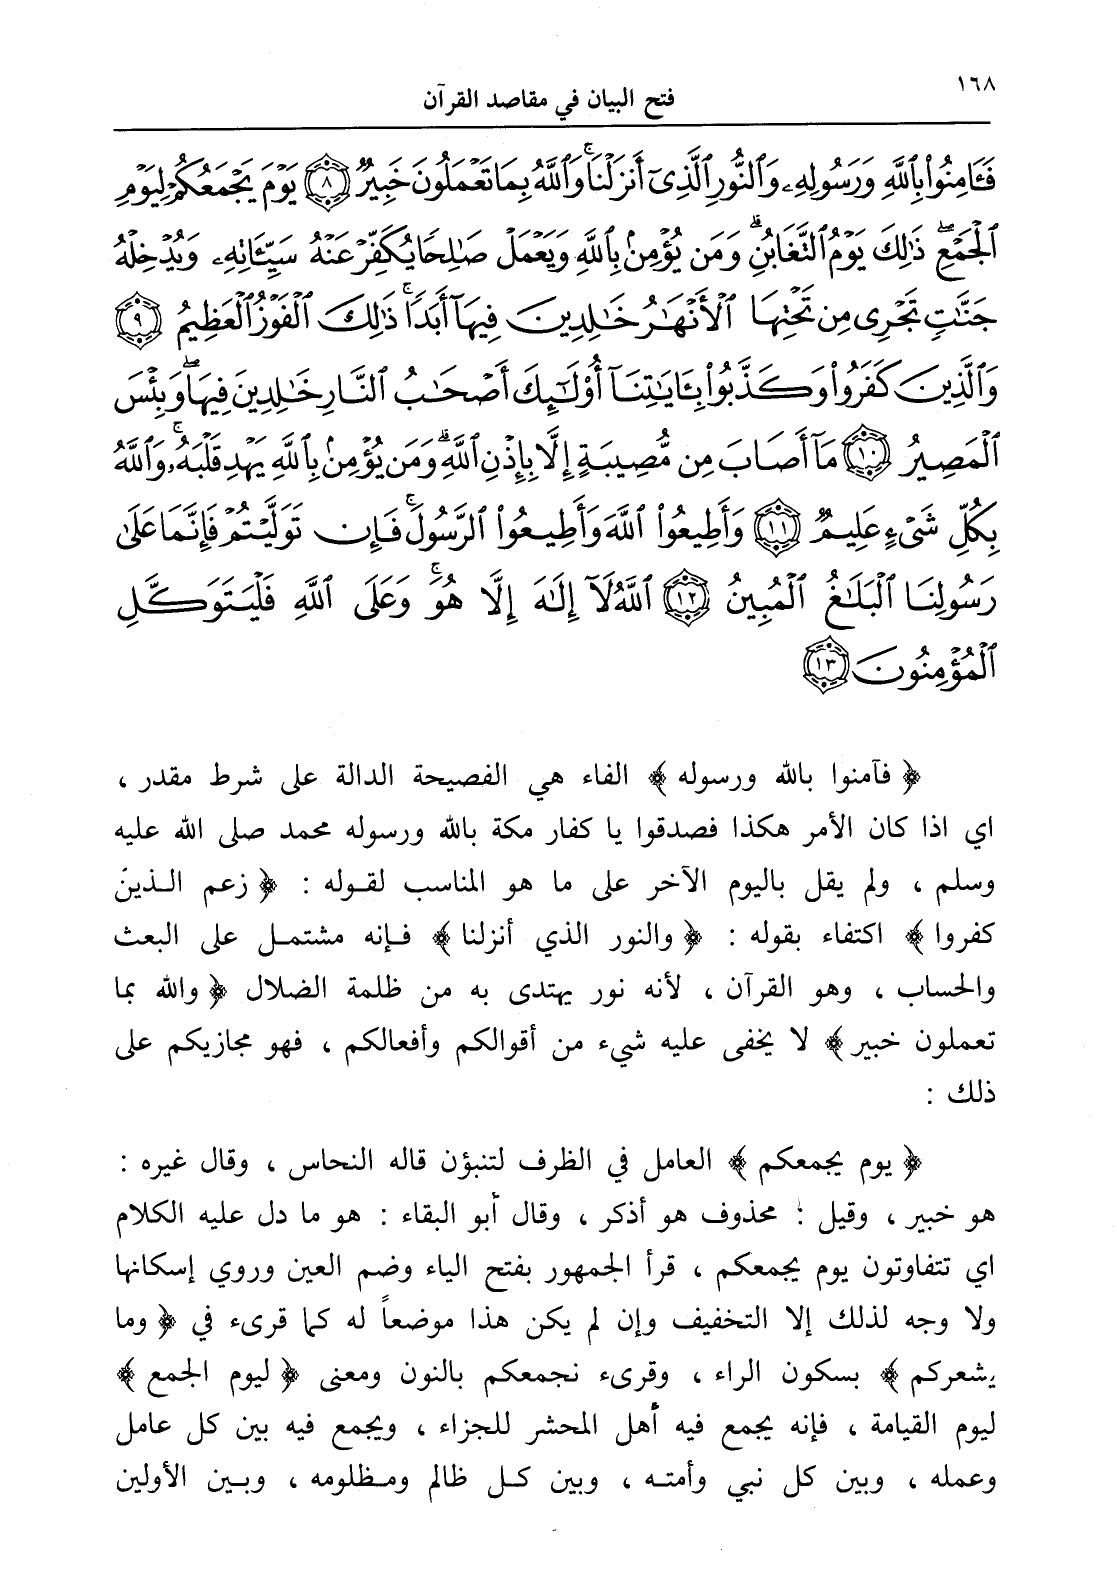 ١٦٨
فتح البيان في مقاصد القرآن
فَـَٔامِنُوا۟ بِٱللَّهِ وَرَسُولِهِۦ وَٱلنُّورِ ٱلَّذِىٓ أَنزَلْنَا ۚ وَٱللَّهُ بِمَا تَعْمَلُونَ خَبِيرٌ ٨ يَوْمَ يَجْمَعُكُمْ لِيَوْمِ
ٱلْجَمْعِ ۖ ذَٰلِكَ يَوْمُ ٱلتَّغَابُنِ ۗ وَمَن يُؤْمِنۢ بِٱللَّهِ وَيَعْمَلْ صَـٰلِحًا يُكَفِّرْ عَنْهُ سَيِّـَٔاتِهِۦ وَيُدْخِلْهُ
جَنَّـٰتٍ تَجْرِى مِن تَحْتِهَا ٱلْأَنْهَـٰرُ خَـٰلِدِينَ فِيهَآ أَبَدًا ۚ ذَٰلِكَ ٱلْفَوْزُ ٱلْعَظِيمُ ٩
وَٱلَّذِينَ كَفَرُوا۟ وَكَذَّبُوا۟ بِـَٔايَـٰتِنَآ أُو۟لَـٰٓئِكَ أَصْحَـٰبُ ٱلنَّارِ خَـٰلِدِينَ فِيهَا ۖ وَبِئْسَ
ٱلْمَصِيرُ ١٠ مَآ أَصَابَ مِن مُّصِيبَةٍ إِلَّا بِإِذْنِ ٱللَّهِ ۗ وَمَن يُؤْمِنۢ بِٱللَّهِ يَهْدِ قَلْبَهُۥ ۚ وَٱللَّهُ
بِكُلِّ شَىْءٍ عَلِيمٌ ١١ وَأَطِيعُوا۟ ٱللَّهَ وَأَطِيعُوا۟ ٱلرَّسُولَ ۚ فَإِن تَوَلَّيْتُمْ فَإِنَّمَا عَلَىٰ
رَسُولِنَا ٱلْبَلَـٰغُ ٱلْمُبِينُ ١٢ ٱللَّهُ لَآ إِلَـٰهَ إِلَّا هُوَ ۚ وَعَلَى ٱللَّهِ فَلْيَتَوَكَّلِ
ٱلْمُؤْمِنُونَ ١٣
﴿ فآمنوا بالله ورسوله ﴾ الفاء هي الفصيحة الدالة على شرط مقدر ،
اي اذا كان الأمر هكذا فصدقوا يا كفار مكة بالله ورسوله محمد صلى الله عليه
وسلم ، ولم يقل باليوم الآخر على ما هو المناسب لقوله : ﴿ زعم الذينَ
كفروا ﴾ اكتفاء بقوله : ﴿ والنور الذي أنزلنا ﴾ فإنه مشتمل على البعث
والحساب ، وهو القرآن ، لأنه نور يهتدى به من ظلمة الضلال ﴿ والله بما
تعملون خبير ﴾ لا يخفى عليه شيء من أقوالكم وأفعالكم ، فهو مجازيكم على
ذلك :
﴿ يوم يجمعكم ﴾ العامل في الظرف لتنبؤن قاله النحاس ، وقال غيره :
هو خبير ، وقيل : محذوف هو أذكر ، وقال أبو البقاء : هو ما دل عليه الكلام
اي تتفاوتون يوم يجمعكم ، قرأ الجمهور بفتح الياء وضم العين وروي إسكانها
ولا وجه لذلك إلا التخفيف وإن لم يكن هذا موضعاً له كما قرىء في ﴿ وما
يشعركم ﴾ بسكون الراء ، وقرىء نجمعكم بالنون ومعنى ﴿ ليوم الجمع ﴾
ليوم القيامة ، فإنه يجمع فيه أهل المحشر للجزاء ، ويجمع فيه بين كل عامل
وعمله ، وبين كل نبي وأمته ، وبين كل ظالم ومظلومه ، وبين الأولين